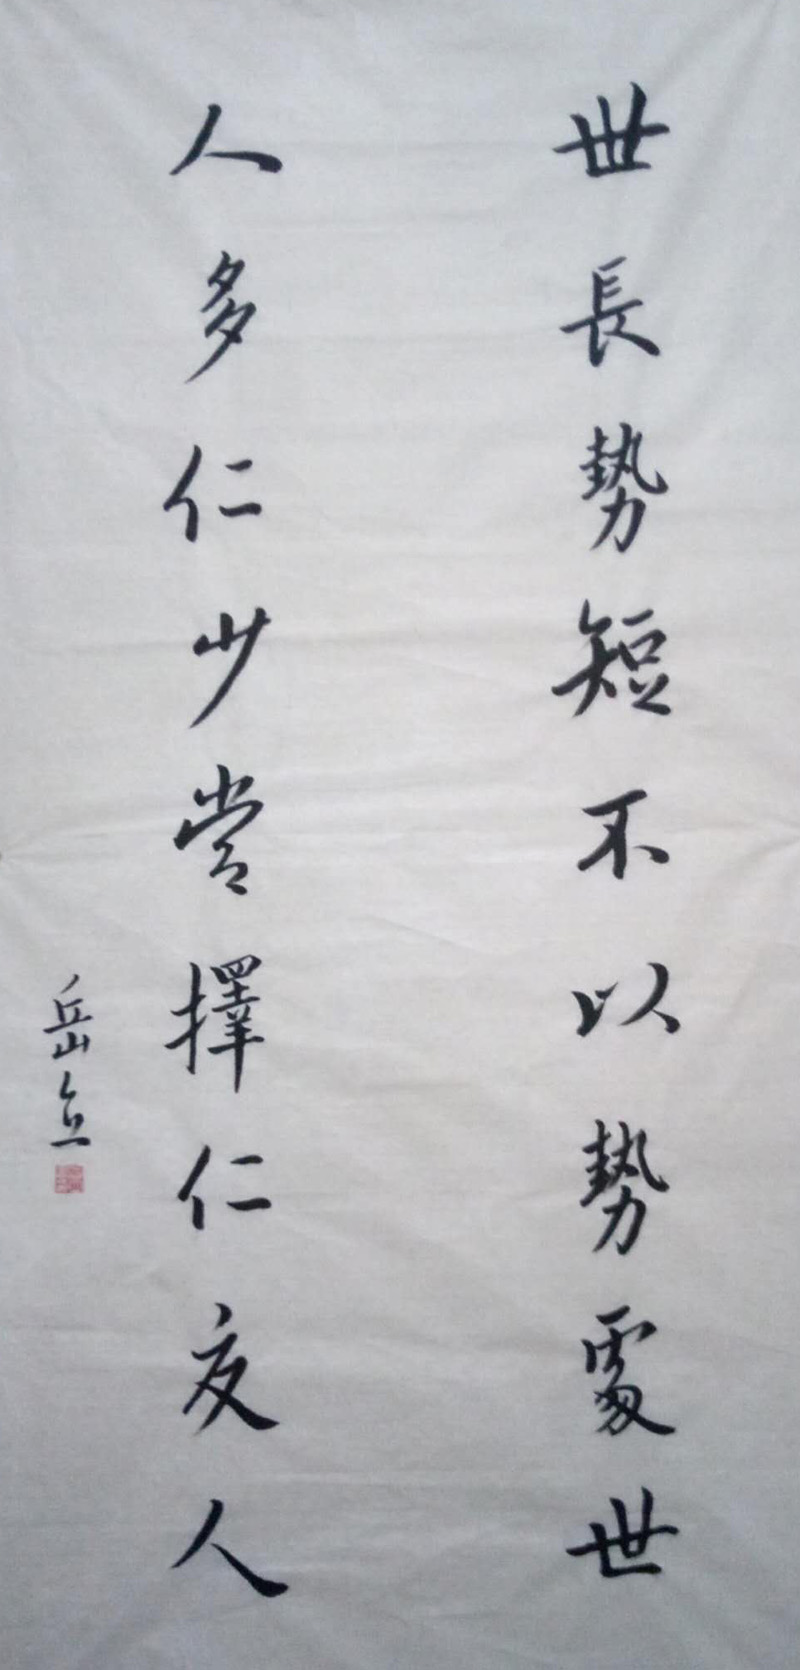 世長勢短不以勢處世
人多仁少當擇仁友人
岳立